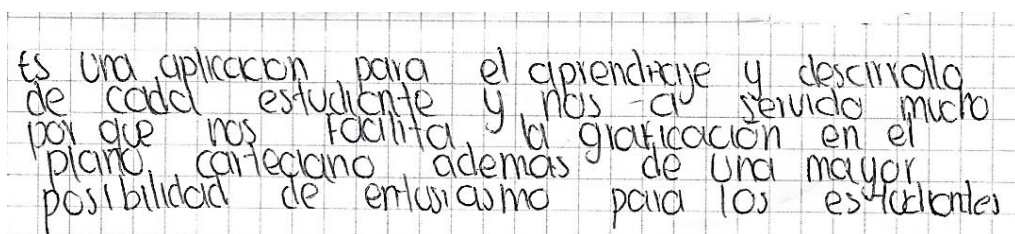 Es una aplicacion para el aprendizaje y desarrollo
de cada estudiante y nos a servido mucho
por que nos facilita la graficación en el
plano carteciano además de una mayor
posibilidad de entusiasmo para los estudiantes